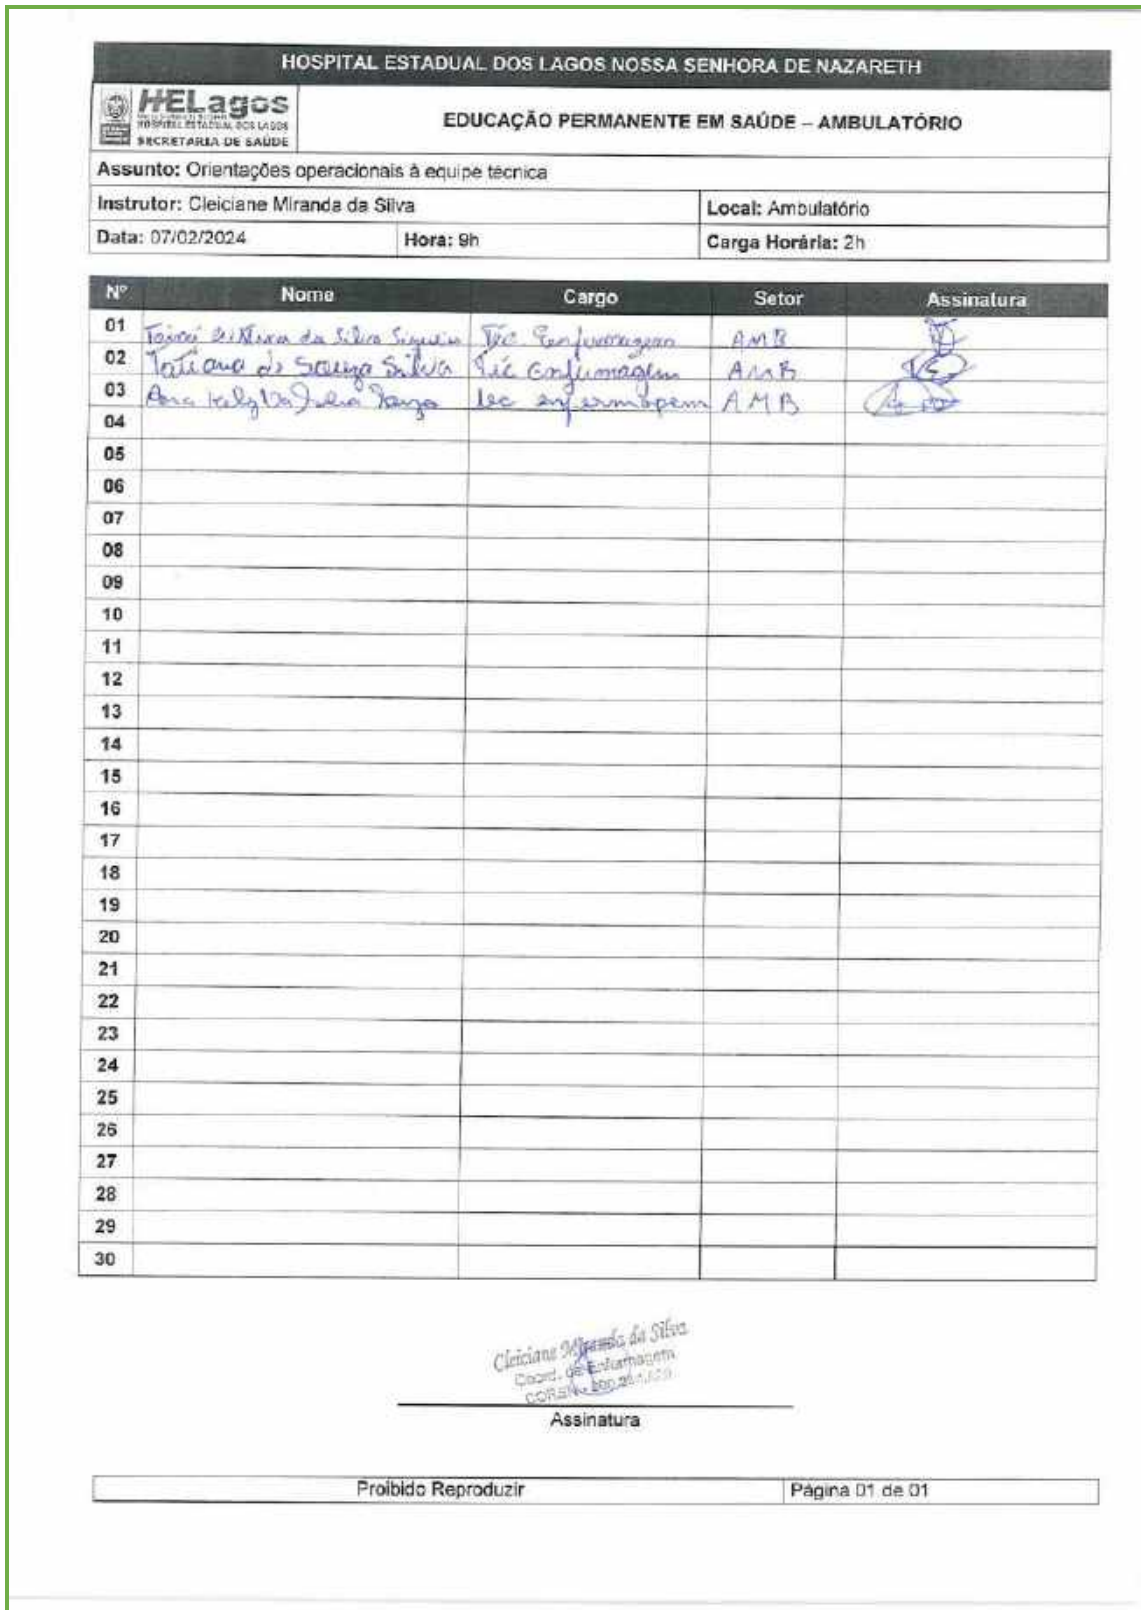 HOSPITAL ESTADUAL DOS LAGOS NOSSA SENHORA DE NAZARETH
HELagos
HOSPITAL ESTADUAL DOS LAGOS
SECRETARIA DE SAÚDE
EDUCAÇÃO PERMANENTE EM SAÚDE – AMBULATÓRIO
Assunto: Orientações operacionais à equipe técnica
Instrutor: Cleiciane Miranda da Silva Local: Ambulatório
Data: 07/02/2024 Hora: 9h Carga Horária: 2h
Nº Nome Cargo Setor Assinatura
01 da Silva Siqueira Téc Enfermagem AMB
02 Tatiana de Souza Silva Téc Enfermagem AMB
03 Ana Tec enfermagem AMB
04
05
06
07
08
09
10
11
12
13
14
15
16
17
18
19
20
21
22
23
24
25
26
27
28
29
30
Cleiciane Miranda da Silva
Coord. de Enfermagem
COREN
Assinatura
Proibido Reproduzir Página 01 de 01